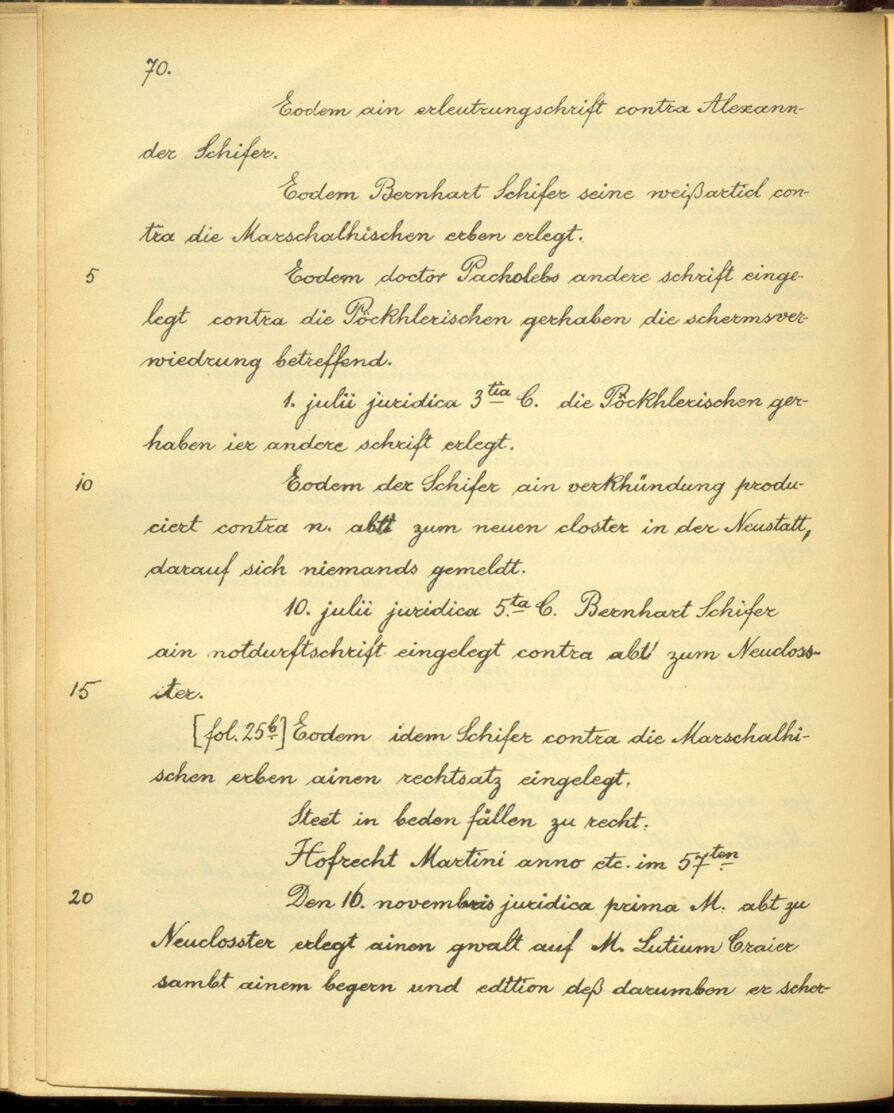 70.
Eodem ain erleutrungschrift contra Alexann-
der Schifer.
Eodem Bernhart Schifer seine weißarticl con-
tra die Marschalhischen erben erlegt.
5 Eodem doctor Pacholebs andere schrift einge-
legt contra die Pöckhlerischen gerhaben die schermsver-
wiedrung betreffend.
1. julii juridica 3tia C. die Pöckhlerischen ger-
haben ier andere schrift erlegt.
10 Eodem der Schifer ain verkhündung produ-
ciert contra n. abtt zum neuen closter in der Neustatt,
darauf sich niemands gemeldt.
10. julii juridica 5.ta C. Bernhart Schifer
ain notdurftschrift eingelegt contra abt zum Neucloss-
15 ter.
[fol. 25b] Eodem idem Schifer contra die Marschalhi-
schen erben ainen rechtsatz eingelegt.
Steet in beden fällen zu recht.
Hofrecht Martini anno etc. im 57ten.
20 Den 16. novembris juridica prima M. abt zu
Neuclosster erlegt ainen gwalt auf M. Lutium Craier
sambt ainem begern und edttion deß darumben er scher-